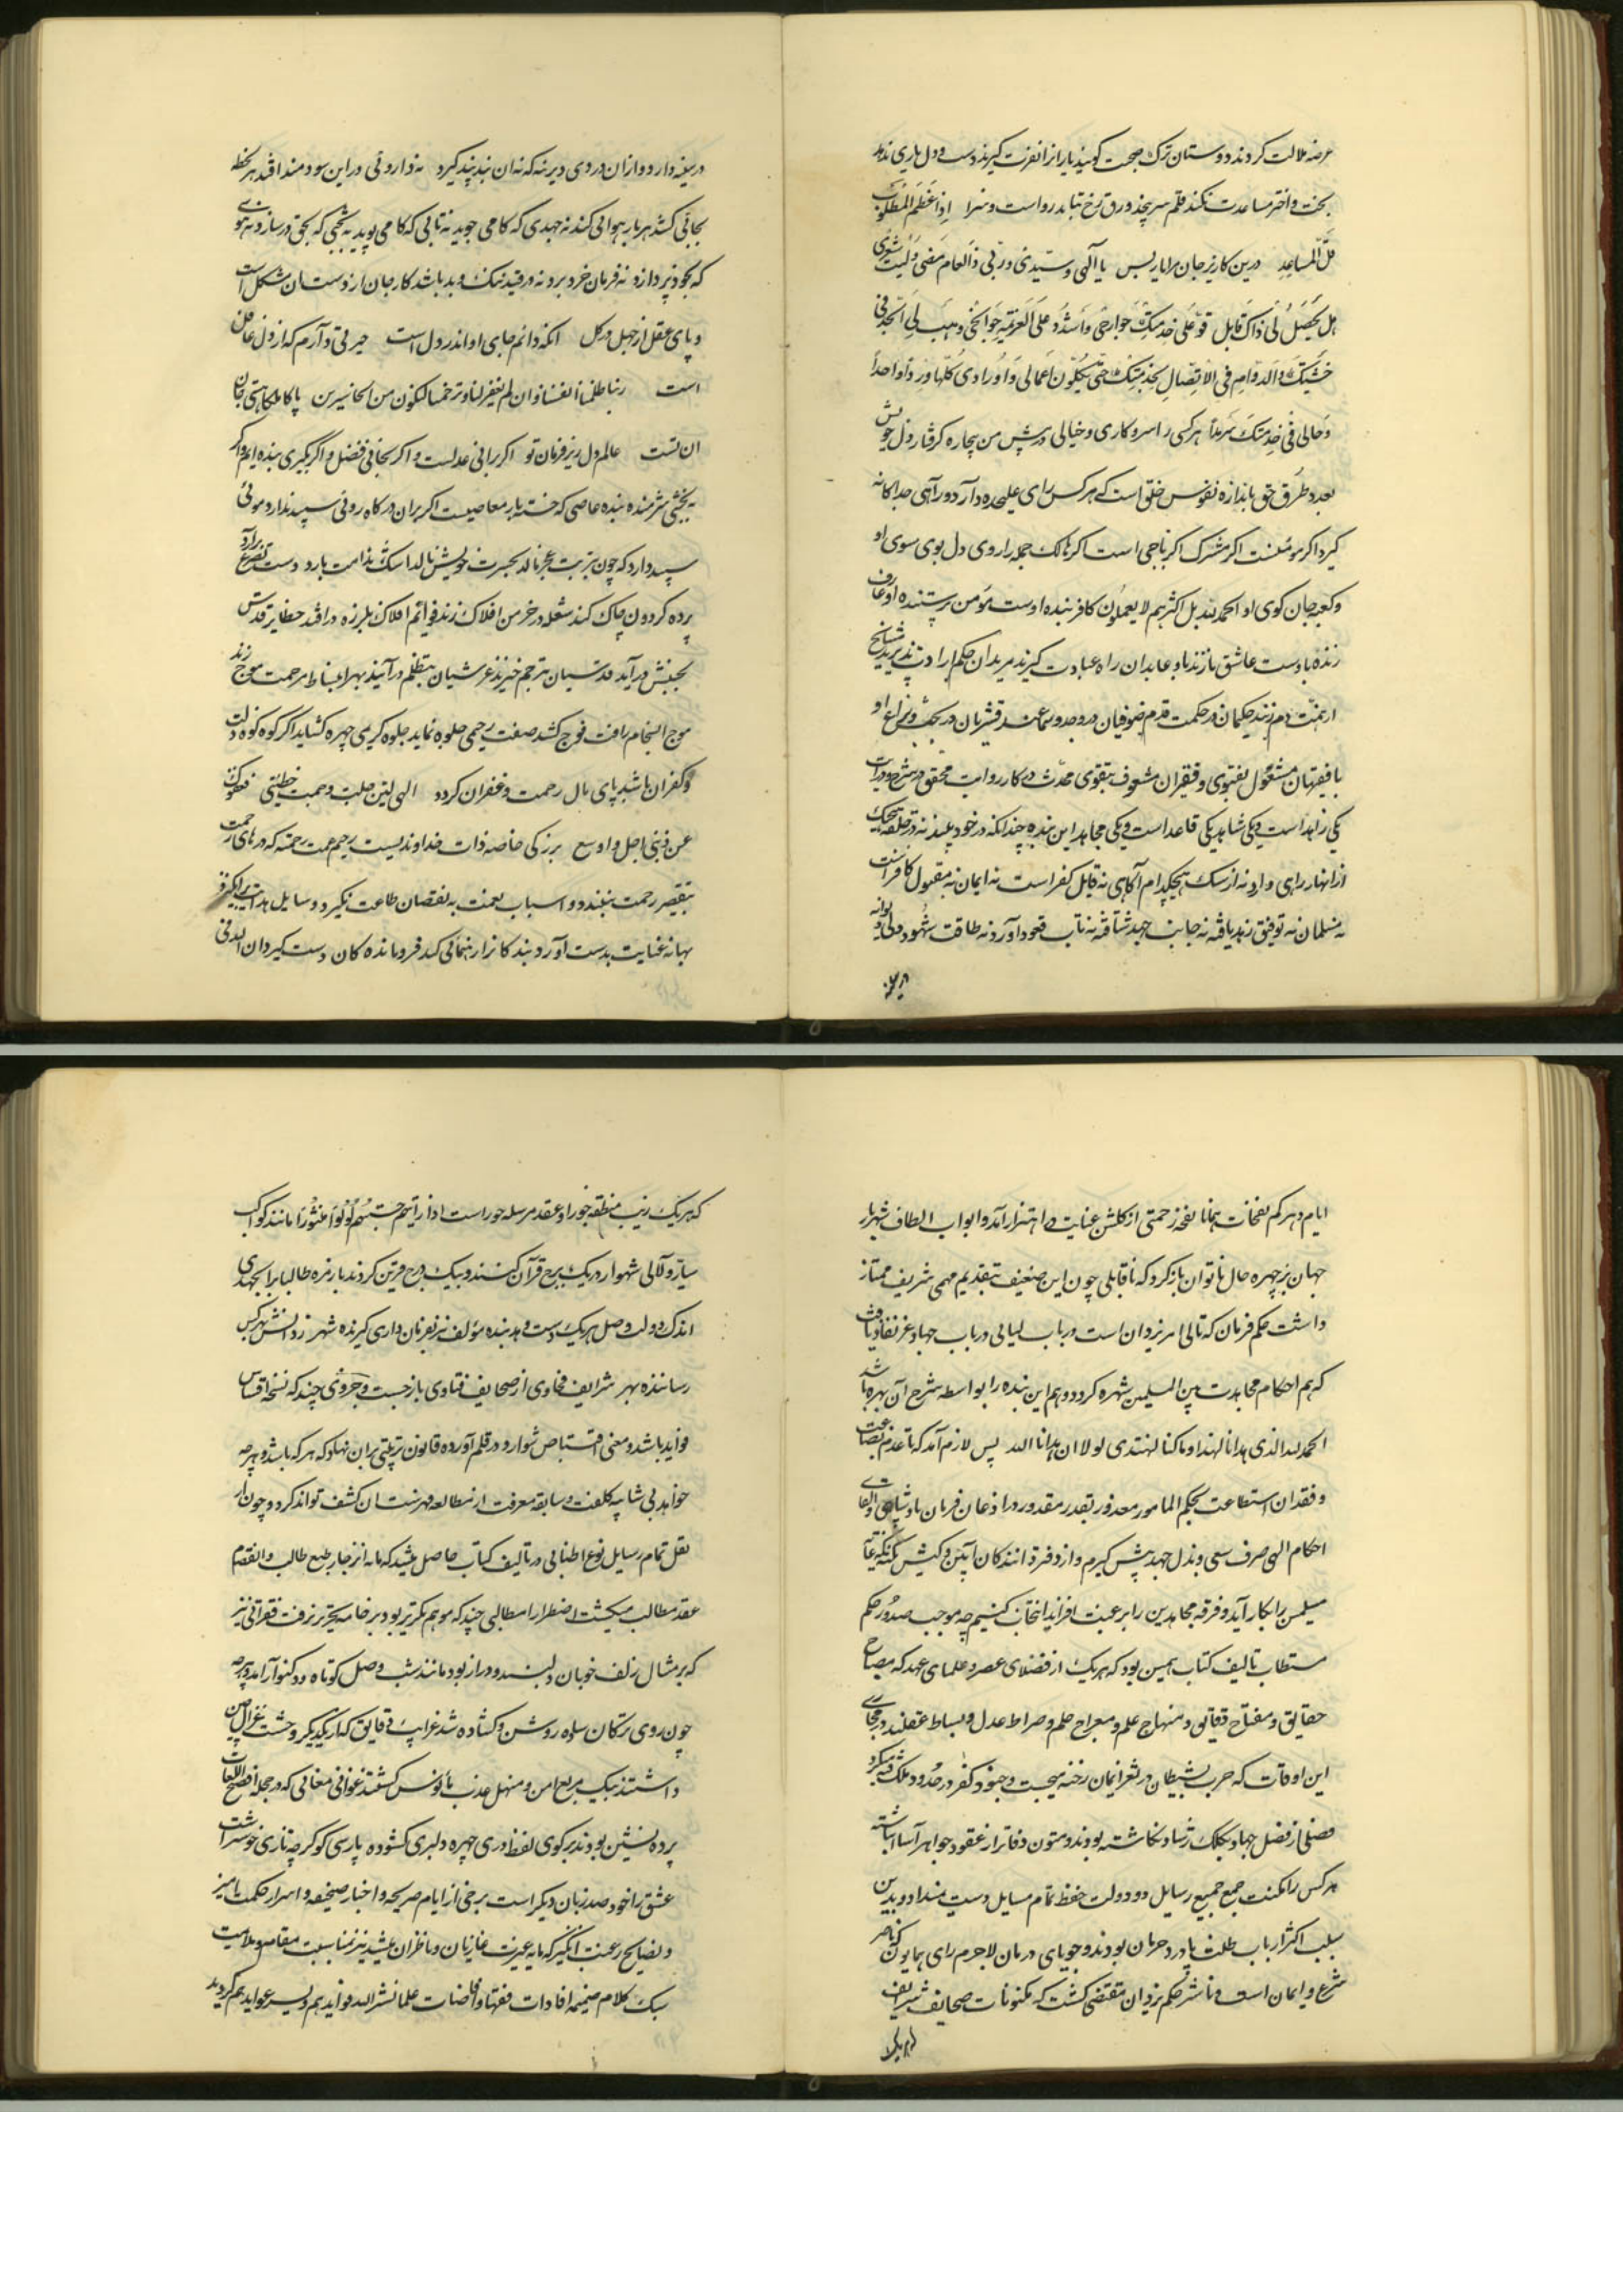 عرضه ملالت کردند دوستان ترک صحبت کویند یاران از نفرت کیرند دست و دل یاری ندهد
بخت و اختر مساعدت نکند قلم سر پیچد ورق رخ نتابد رواست و سزا اذا عظم المطلوب
قل المساعد درین کار نیز جان مرا یار بس یا الهی و سیدی و ربی ذا العام مضی و لیت شعری
هل یحصل لی ذاک قابل قو علی خدمتک جوارحی و اشدد علی العزیمة جوانحی و هب لی الجد فی
خشیتک و الدوام فی الاتصال بخدمتک حتی یکون اعمالی و اورادی کلها وردا واحدا
و حالی فی خدمتک سرمدا هر کسی را سر و کاری و خیالی در پیش من بیچاره کرفتار دل خویش
بعدد طرق حق باندازه نفوس خلق است که هر کس رای علیحده دارد و راهی جداکانه
کیرد اکر مومنست اکر مشرک اکر ناجی است اکر هالک جمله را روی دل بوی سوی او
و کعبه جان کوی او الحمد لله بل اکثرهم لا یعلمون کافر بنده اوست مومن پرستنده او عارف
زنده با اوست عاشق نازنده باو عابدان راه عبادت کیرند مریدان حکم ارادت پذیرند مشایخ
از همت دم زنند حکیمان در حکمت قدم صوفیان در وجد و سماعند قشریان در بحث و نزاع او
با فقیهان مشغول بفتوی و فقیران مشعوف بتقوی محدث در کار روایت محقق در شرح درایت
یکی زاهد است و یکی شاهد یکی قاعد است و یکی مجاهد این بنده چندانکه در خود بیند نه در حلقه هیچیک
از انها راهی دارد نه از مسلک هیچکدام آکاهی نه قابل کفر است نه ایمان نه مقبول کافر است
نه مسلمان نه توفیق زهد یافته نه جانب جهد شتافته نه تاب قعود آورد نه طاقت شهود دلی دیوانه
در سینه
در سینه دارد و ازان دردی دیرینه که نه ان بند پند کیرد نه داروئی در این سودمند افتد هر لحظه
بجائی کشد هر بار هوائی کند نه جهدی که کامی جوید نه تابی که کامی پوید نه بختی که بحق در سازد نه هوشی
که بخود پردازد نه فرمان خرد برد نه در قید نیک و بد باشد کار جان از دست ان مشکل است
و پای عقل از جهل در کل انکه دائم جای او اندر دل است حیرتی دارم که از دل غافل
است ربنا ظلمنا انفسنا و ان لم تغفر لنا و ترحمنا لنکون من الخاسرین پاکا ملکا هستی جان
ان تست عالم دل زیر فرمان تو اکر برانی عدلست و اکر بخوانی فضل و اکر بکیری بنده ایم و اکر
ببخشی شرمنده بنده عاصی که خسته بار معاصیست اکر بران درکاه روئی سپید ندارد موئی
سپید دارد که چون بتربت عجز نالد بحسرت خویش نالد اشک ندامت بارد دست تضرع برآرد
پرده کردون چاک کند شعله در خرمن افلاک زند قوایم افلاک بلرزه در افتد حظایر قدس
بجنبش درآید قدسیان بترحم خیزند عرشیان بتظلم درآیند بهر انبساط مرحمت موج زند
موج انجام رافت فوج کشد صفت رحیمی جلوه نماید جلوه کریمی چهره کشاید اکر کوه کوه ذلت
و کفران باشد پای مال رحمت و غفران کردد الهی لئن جلت و جمت خطیئتی فعفوک
عن ذنبی اجل و اوسع بزرکی خاصه ذات خداوندیست رحیم عمت رحمته که درهای رحمت
بتقصیر رحمت نبندد و اسباب نعمت به نقصان طاعت نکیرد و وسایل هدایت برانکیزد
بهانه عنایت بدست آورد بندکانرا رهنمائی کند فرومانده کان دست کیرد ان الله فی
ایام دهرکم نفحات همانا نفحه رحمتی از کلشن عنایت در اهتزاز آمد و ابواب الطاف شهریار
جهان بر چهره حال ناتوان باز کرد که ناقابلی چون این ضعیف بتقدیم مهمی شریف ممتاز
داشت حکم فرمان که تالی امر یزدان است در باب لیالی در باب جهاد عز نفاذ یافت
که هم احکام مجاهدت بین المسلمین شهره کردد و هم این بنده را بواسطه شرح آن بهره باشد
الحمد لله الذی هدانا لهذا و ما کنا لنهتدی لولا ان هدانا الله پس لازم آمد که با عدم بضاعت
و فقدان استطاعت بحکم المامور معذور بقدر مقدور در اذعان فرمان پادشاهی و القای
احکام الهی صرف سعی و بذل جهد پیش کیرم و از دفتر دانندکان آیین و کیش نکته که غایت
مسلمین را بکار آید و فرقه مجاهدین را بر رغبت افزاید انتخاب کنیم چه موجب صدور حکم
مستطاب تالیف کتاب همین بود که هر یک از فضلای عصر و علمای عهد که مصباح
حقایق و مفتاح دقایق و منهاج علم و معراج حلم و صراط عدل و بساط عقلند در مجاری
این اوقات که حزب شیطان در ثغر ایمان رخنه میجست و جنود کفر در حدود ملک فتنه میکرد
فصلی از فضل جهاد بکلک رشاد نکاشته بودند و متون دفاتر از عقود جواهر آسا انباشته
هر کس را مکنت جمع جمیع رسایل و دولت حفظ تمام مسایل دست نمیداد و بدین
سبب اکثر ارباب طلب با درد حرمان بودند و جویای درمان لاجرم رای همایون که ناصر
شرع و ایمان است و ناشر حکم یزدان مقتضی کشت که مکنونات صحایف شرایف
که هر یک زیب منطقه جوزا و عقد مرسله حور است اذا رایتهم حسبتهم لؤلؤا منثورا مانند کواکب
سیار و لآلی شهوار در یک برج قرآن کنند و بیک درج قرین کردند تا زمره طالبان را بجهدی
اندک دولت وصل هر یک دست دهد بنده مؤلف نیز فرمان داری کیرنده شهر ز دانش بهرکس
رسانده بهر شرایف فحاوی از صحایف فتاوی باز جست و جزوی چند که نسخه اقتباس
فواید باشد و معنی اقتناص شوارد در قلم آورده قانون ترتیبی بران نهاد که هر که باشد و هر چه
خواهد بی شایبه کلفت و سابقه معرفت از مطالعه فهرست ان کشف تواند کرد و چون از
نقل تمام رسایل نوع اطنابی در تالیف کتاب حاصل میشد که مایه انزجار طبع طالب و انفصام
عقد مطالب میکشت اضطرارا مطالبی چند که موهم تکریر بود بر خامه تحریر نرفت فقراتی نیز
که بر مثال زلف خوبان دلبند و دراز بود مانند شب وصل کوتاه و دلکش آراء آمد و هر چه
چون روی ترکان ساده روشن و کشاده شد غرایب دقایق که از یکدیکر وحشت غزال چین
داشتند بیک مربع امن و منهل عذب مأنوس کشتند غوانی معانی که در حجله افصح اللغات
پرده نشین بودند بر کوی لفظ دری چهره دلبری کشوده پارسی کو کرچه تازی خوشتر است
عشق را خود صد زبان دیکر است برخی از ایام صریحه و اخبار صحیحه و اسرار حکمت آمیز
و نصایح رغبت انکیز که مایه غیرت غازیان و ناظران میشد نیز بمناسبت مقام و ملایمت
سبک کلام ضمیمه افادات فقها و افاضات علما نشر الله فوایدهم و یسر عوایدهم کردید